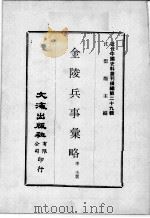 近代中國史料叢刊續編第二十九輯
沈雲龍主編
金陵兵事彙略
文海出版社
有限
公司
印行